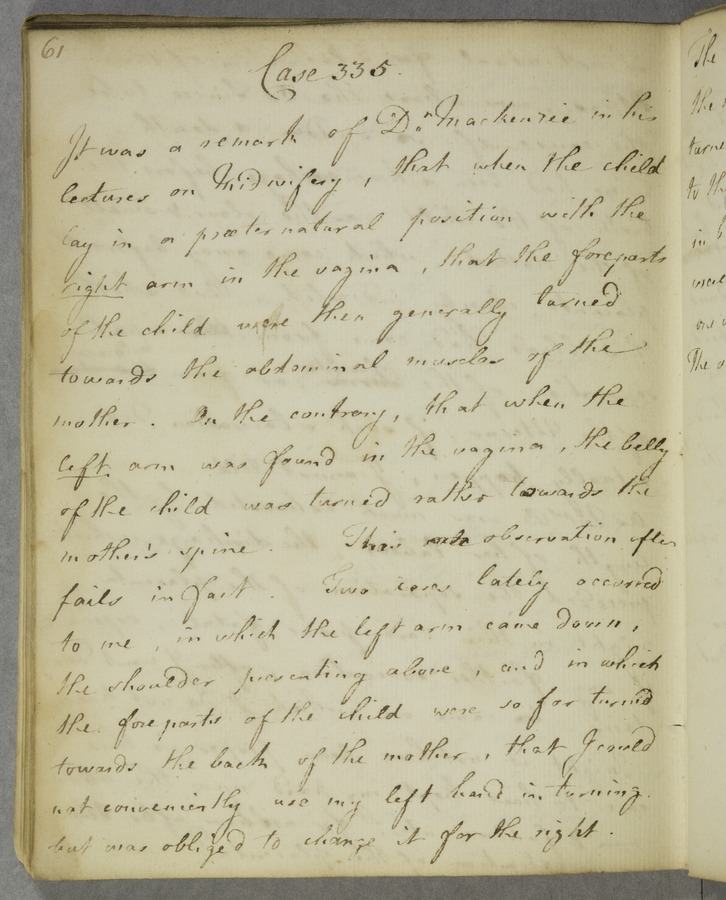 61
Case 335.
It was a remark of Dr. Mackenzie in his
lectures on Midwifery, that when the child
lay in a præternatural position with the
right arm in the vagina, that the foreparts
of the child were then generally turned
towards the abdominal muscles of the
mother. On the contrary, that when the
left arm was found in the vagina, the belly
of the child was turned rather towards the
mother's spine. This observation often
fails in fact. Two cases lately occurred
to me, in which the left arm came down,
the shoulder presenting above, and in which
the foreparts of the child were so far turned
towards the back of the mother, that I could
not conveniently use my left hand in turning.
but was obliged to change it for the right.
The
the
turne
to th
in
one
The